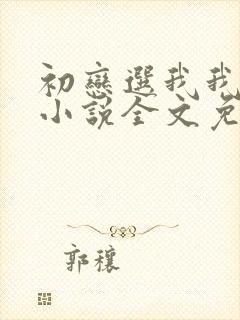 初戀選我我
小說全文免
郭穰